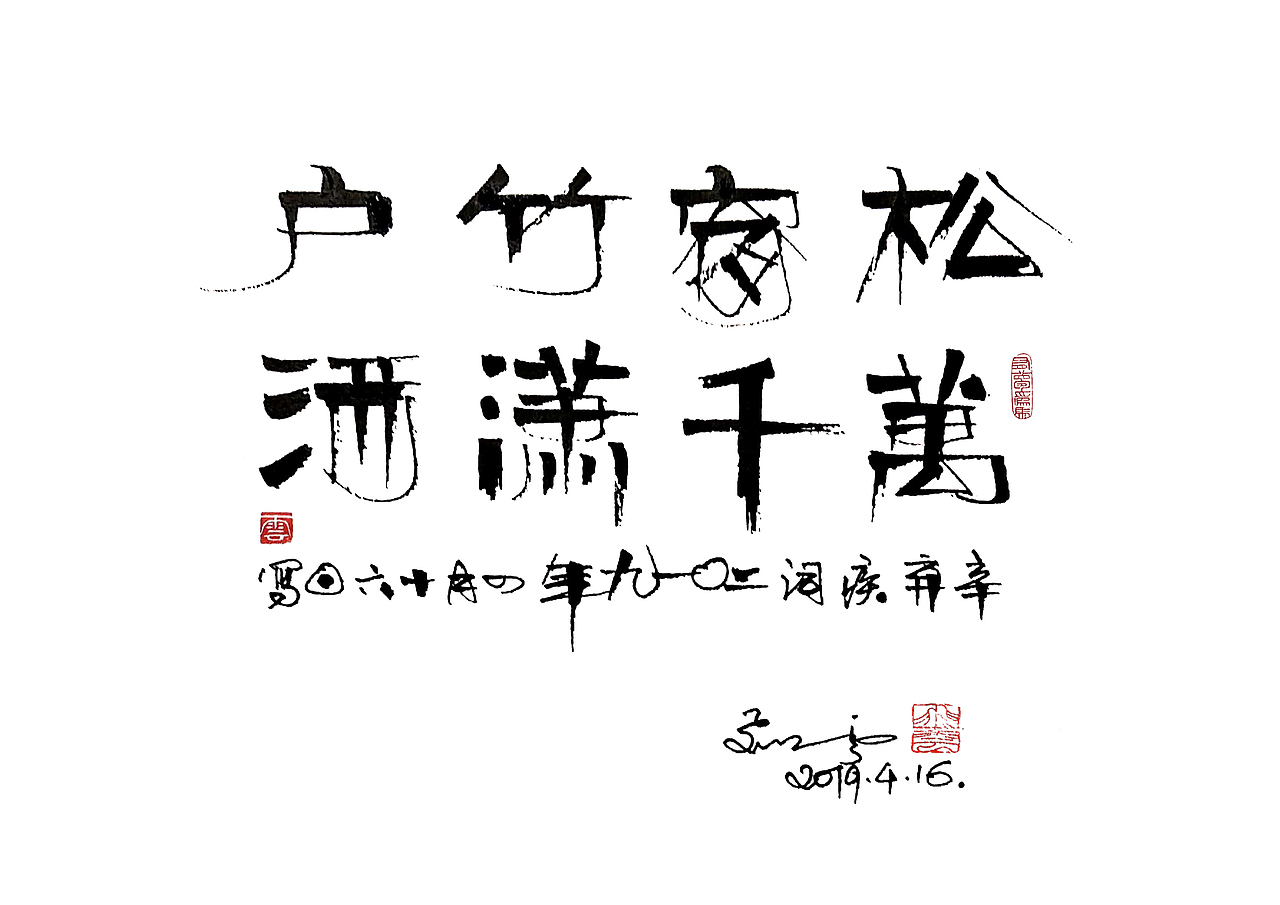 松窗竹户
萬千潇洒
辛弃疾词二〇一九年四月十六日写
雲
2019.4.16.